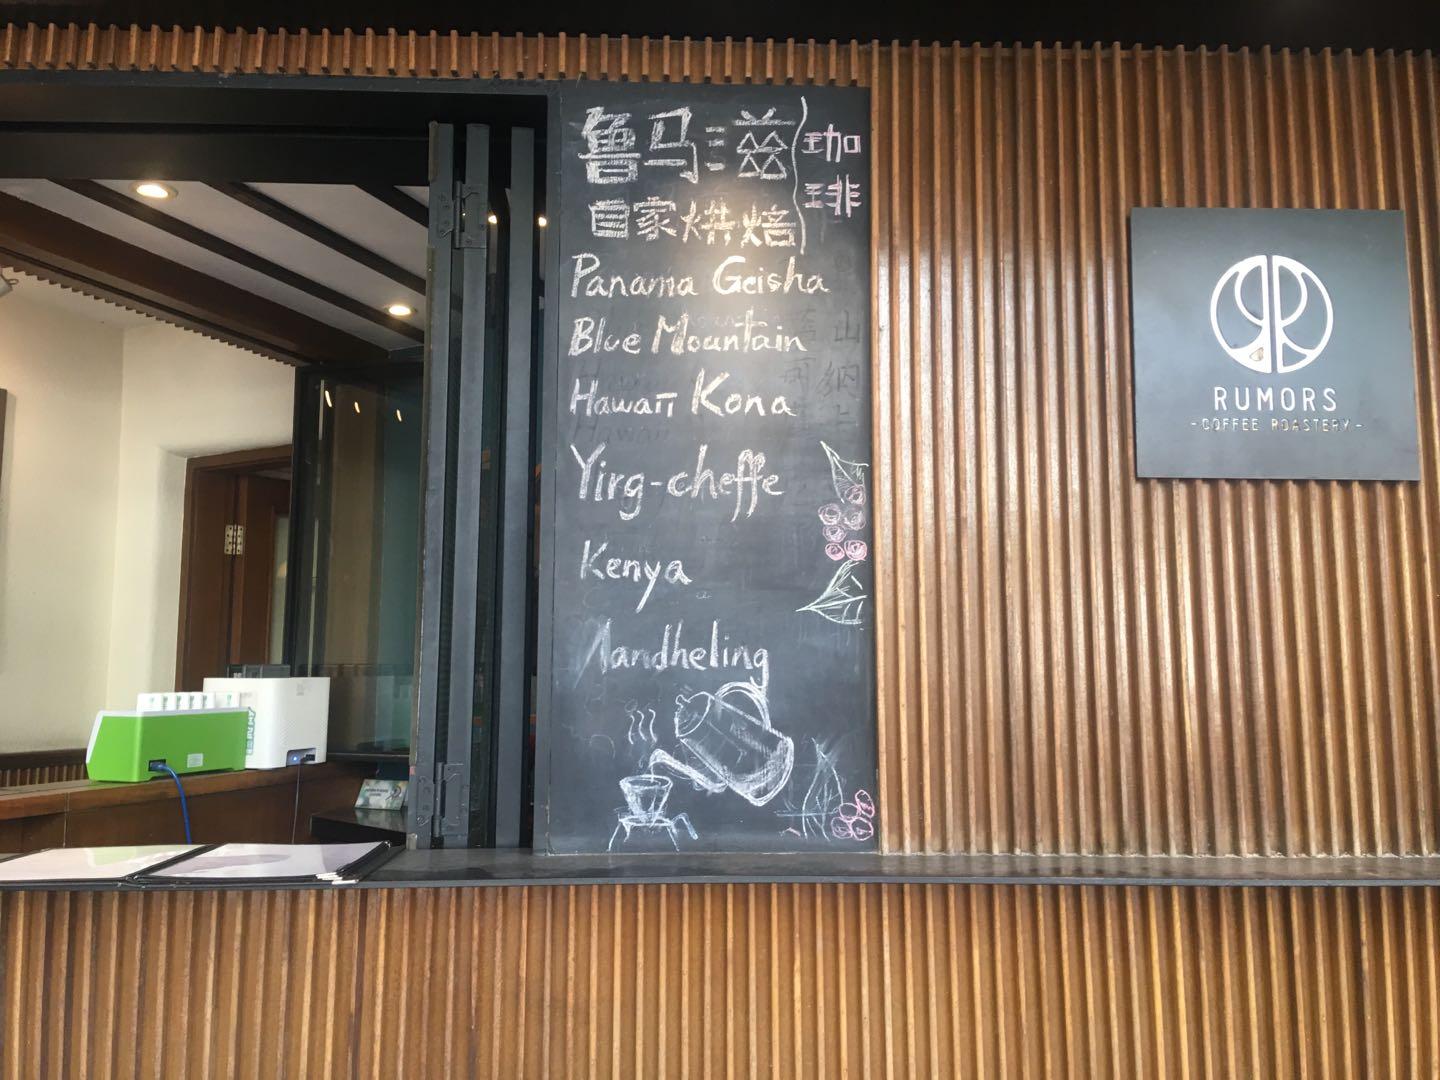 魯马滋 咖啡
自家烘焙
Panama Geisha
Blue Mountain
Hawaii Kona
Yirg-cheffe
Kenya
Mandheling
RUMORS
-COFFEE ROASTERY-